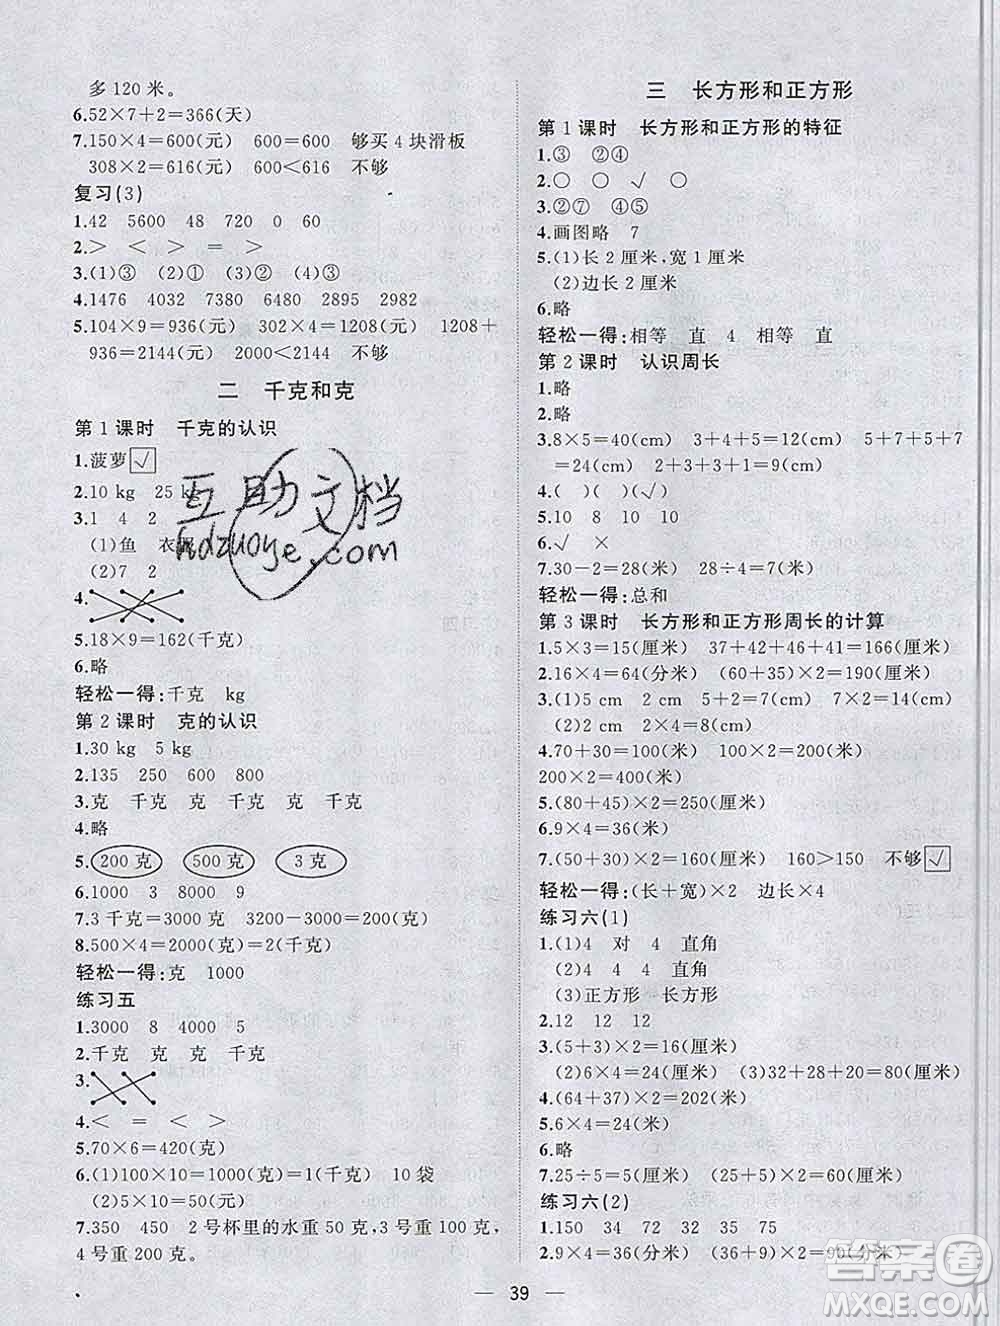 多120米。
6.52×7+2=366(天)
7.150×4=600(元) 600=600 够买4块滑板
308×2=616(元) 616>600 不够
复习(3)
1.42 5600 48 720 0 60
2.> < > = > <
3.(1)③ (2)① (3)② (4)③
4.1476 4032 7380 6480 2895 2982
5.104×9=936(元) 302×4=1208(元) 1208+
936=2144(元) 2000<2144 不够
二 千克和克
第1课时 千克的认识
1.菠萝 √
2.10 kg 25 kg
3.1 4 2
(1)鱼
(2)7 2
4.
5.18×9=162(千克)
6.略
轻松一得:千克 kg
第2课时 克的认识
1.30 kg 5 kg
2.135 250 600 800
3.克 千克 克 千克 克 千克
4.略
5.200克 500克 3克
6.1000 3 8000 9
7.3千克=3000克 3200-3000=200(克)
8.500×4=2000(克)=2(千克)
轻松一得:克 1000
练习五
1.3000 8 4000 5
2.千克 克 克 千克
3.
4.< = < >
5.70×6=420(克)
6.(1)100×10=1000(克)=1(千克) 10袋
(2)5×10=50(元)
7.350 450 2号杯里的水重50克,3号重100克,
4号重200克。
三 长方形和正方形
第1课时 长方形和正方形的特征
1.③ ②④
2.○ ○ √ ○
3.②⑦ ④⑤
4.画图略 7
5.(1)长2厘米,宽1厘米
(2)边长2厘米
6.略
轻松一得:相等 直 4 相等 直
第2课时 认识周长
1.略
2.略
3.8×5=40(cm) 3+4+5=12(cm) 5+7+5+7
=24(cm) 3+2+3+1=9(cm)
4.( )( )(√)
5.10 8 10 10
6.√ ×
7.30-2=28(米) 28÷4=7(米)
轻松一得:总和
第3课时 长方形和正方形周长的计算
1.5×3=15(厘米) 37+42+46+41=166(厘米)
2.16×4=64(分米) (60+35)×2=190(厘米)
3.(1)5 cm 2 cm 5+2=7(cm) 7×2=14(cm)
(2)2 cm 2×4=8(cm)
4.70+30=100(米) 100×2=200(米)
200×2=400(米)
5.(80+45)×2=250(厘米)
6.9×4=36(米)
7.(50+30)×2=160(厘米) 160>150 不够 √
轻松一得:(长+宽)×2 边长×4
练习六(1)
1.(1)4 对 4 直角
(2)4 4 4 直角
(3)正方形 长方形
2.12 12 12
3.(5+3)×2=16(厘米)
(2)6×2=12(厘米) (3)32+28+20=80(厘米)
4.(64+37)×2=202(米)
5.6×4=24(米)
6.略
7.25÷5=5(厘米) (25+5)×2=60(厘米)
练习六(2)
1.150 34 72 32 35 75
2.9×4=36(分米) (36+9)×2=90(分米)
39
互助文档
hdzuoye.com
答案圈
MXQE.COM